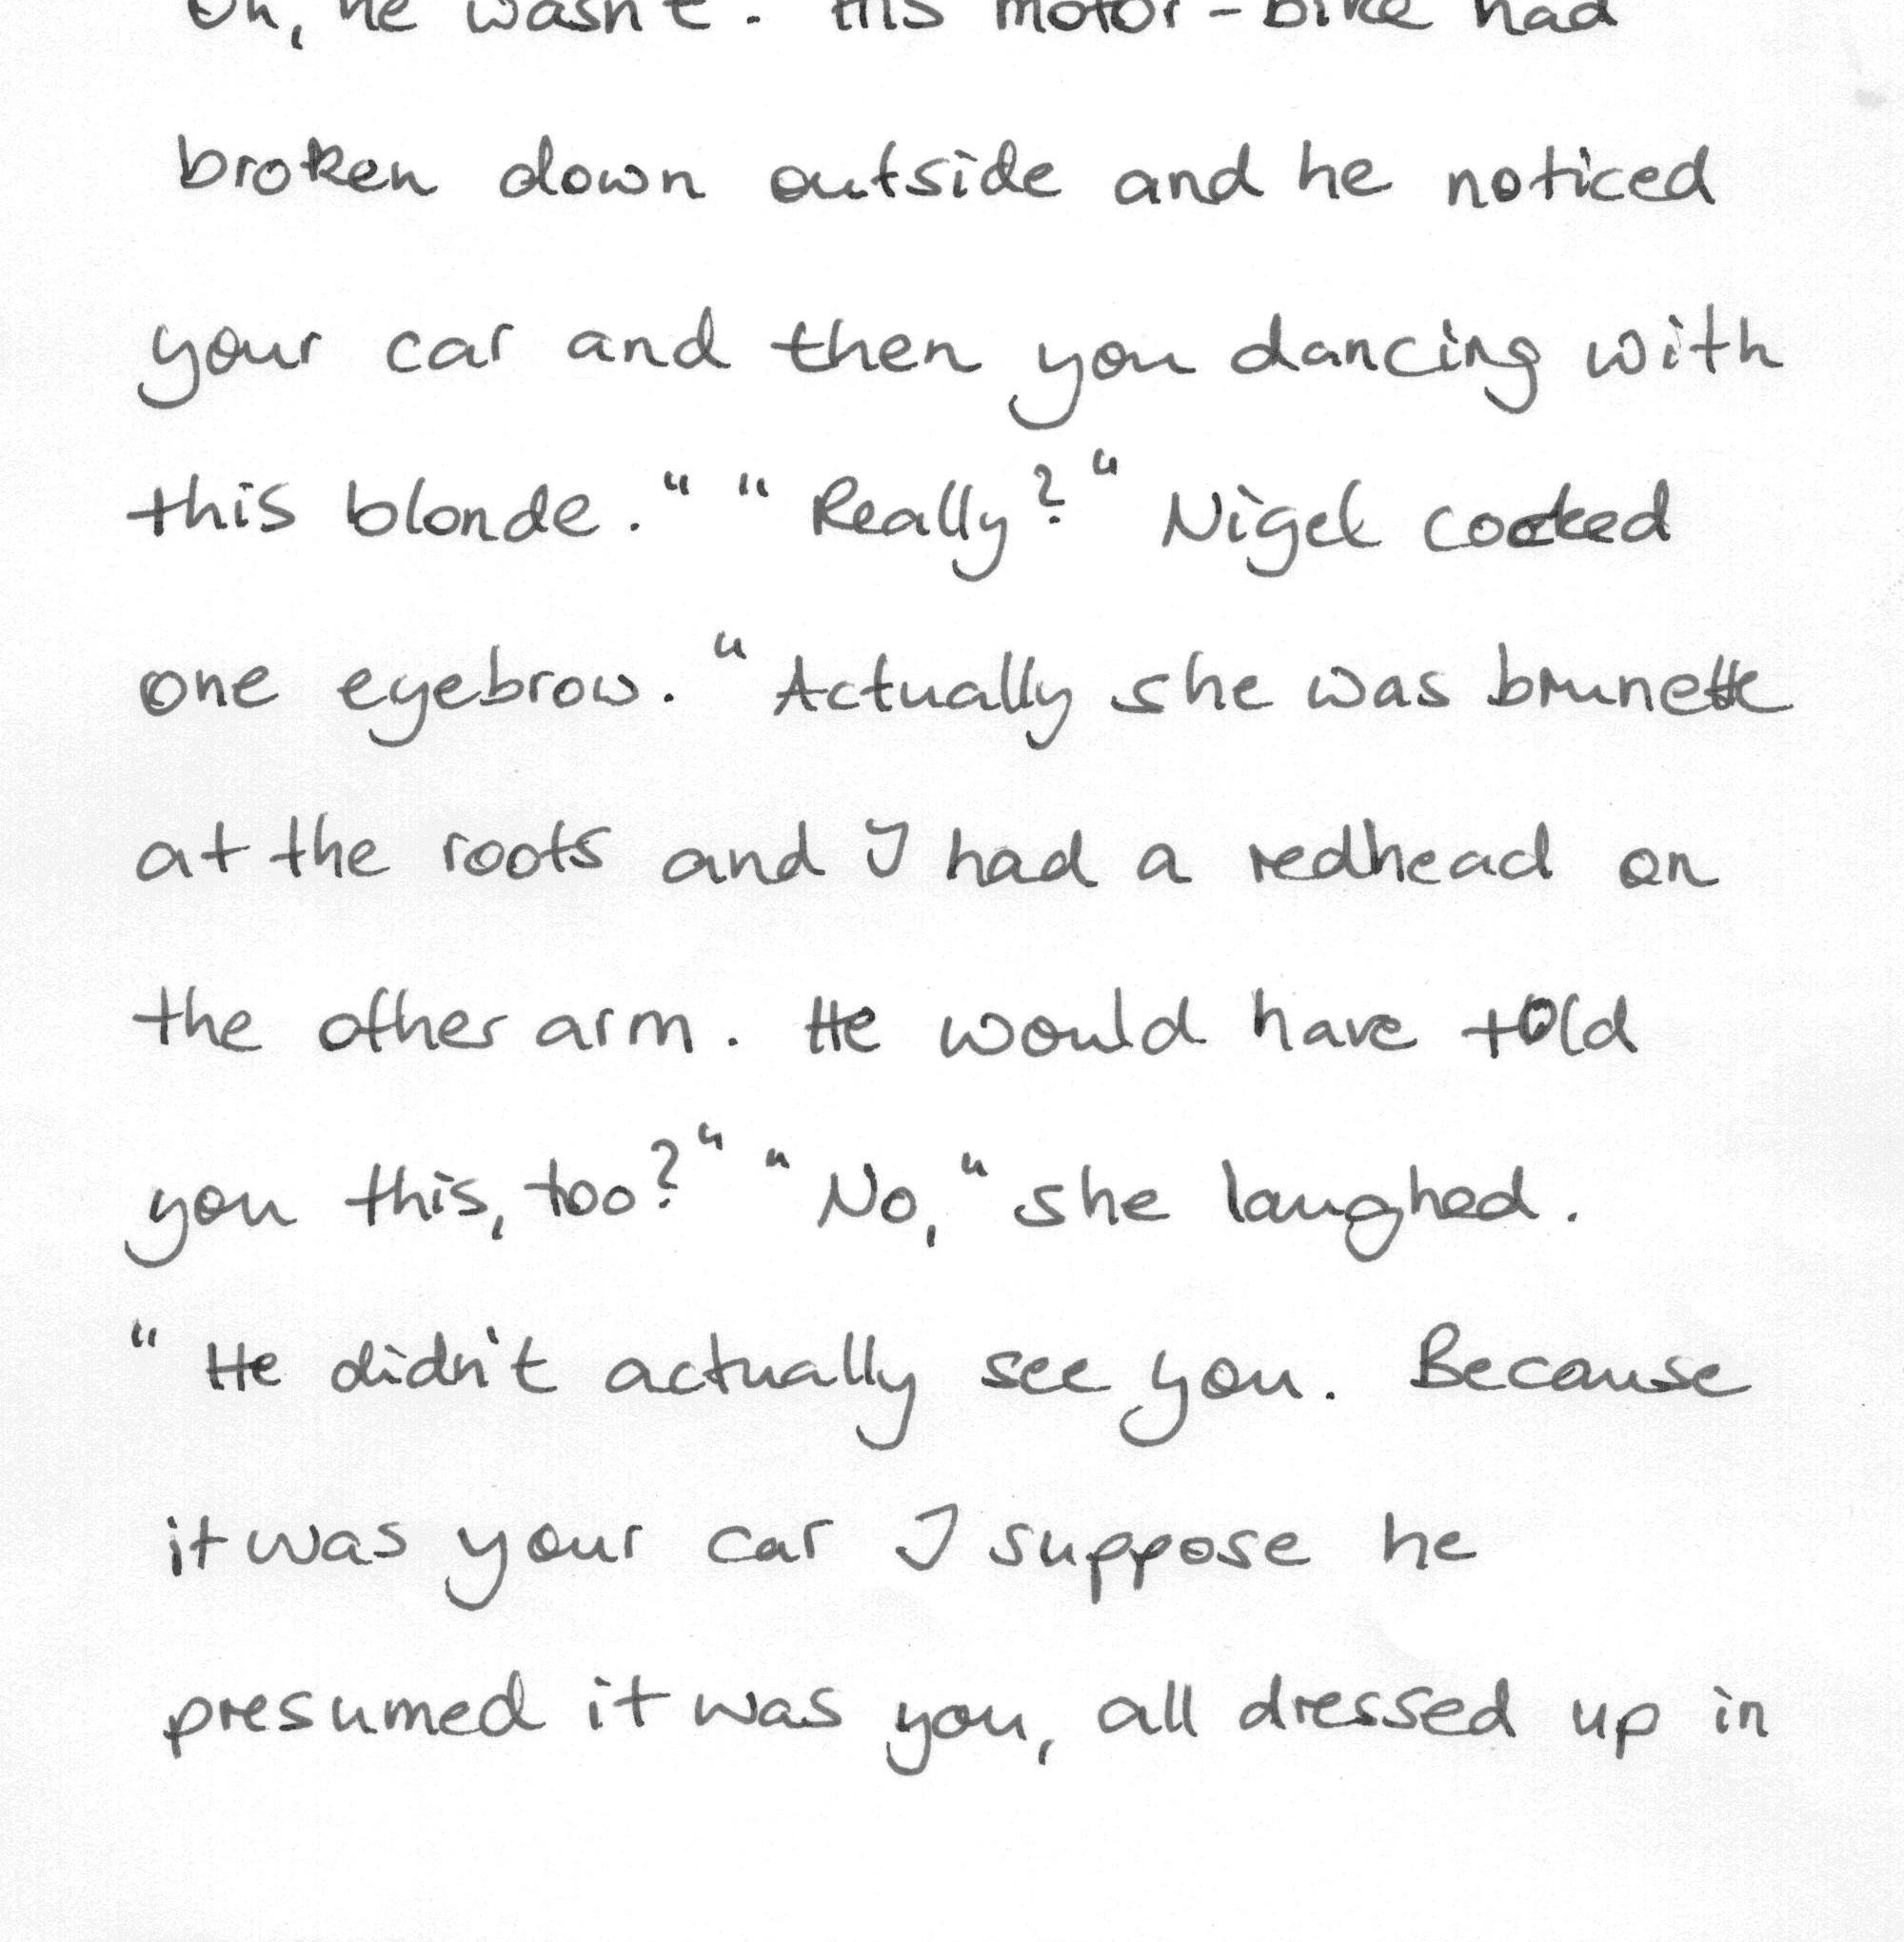 Oh, he wasn't. His motor-bike had
broken down outside and he noticed
your car and then you dancing with
this blonde." "Really?" Nigel cocked
one eyebrow. "Actually she was brunette
at the roots and I had a redhead on
the other arm. He would have told
you this, too?" "No," she laughed.
"He didn't actually see you. Because
it was your car I suppose he
presumed it was you, all dressed up in